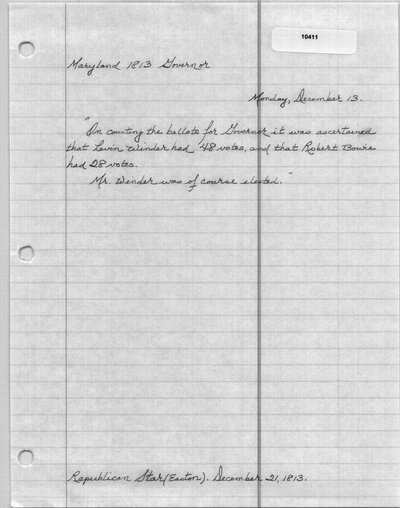 10411
Maryland 1813 Governor
Monday, December 13.
"On counting the ballots for Governor it was ascertained
that Levin Winder had 48 votes, and that Robert Bowie
had 28 votes.
Mr. Winder was of course elected."
Republican Star (Easton). December 21, 1813.